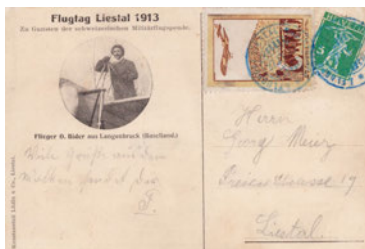 Flugtag Liestal 1913
Zu Gunsten der schweizerischen Militärflugspende.
Flieger O. Bider aus Langenbruck (Baselland.)
Viele Grüsse aus den
Wolken sendet Dir
Herrn
Georg Meier
Freien Strasse 19
Liestal
HELVETIA
5